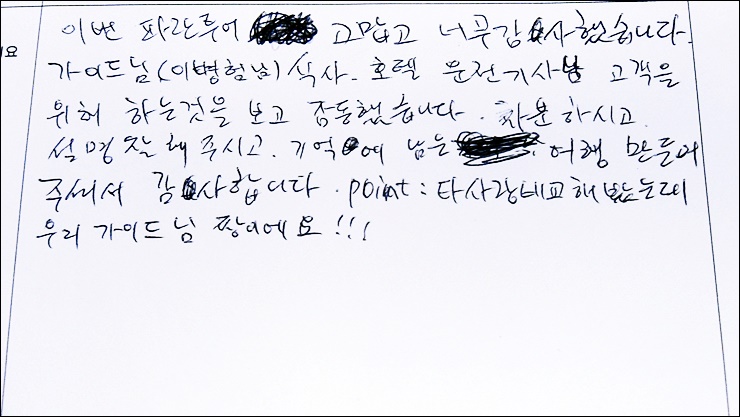 이번 파란투어 고맙고 너무감사했습니다.
가이드님(이병험님) 식사. 호텔 운전기사님 고객을
위해 하는것을 보고 감동했습니다. 차분하시고
석명잘해주시고. 기억에 남는 여행 만들어
주셔서 감사합니다. point : 타사랑비교해봤는데
우리 가이드님 짱이에요!!!